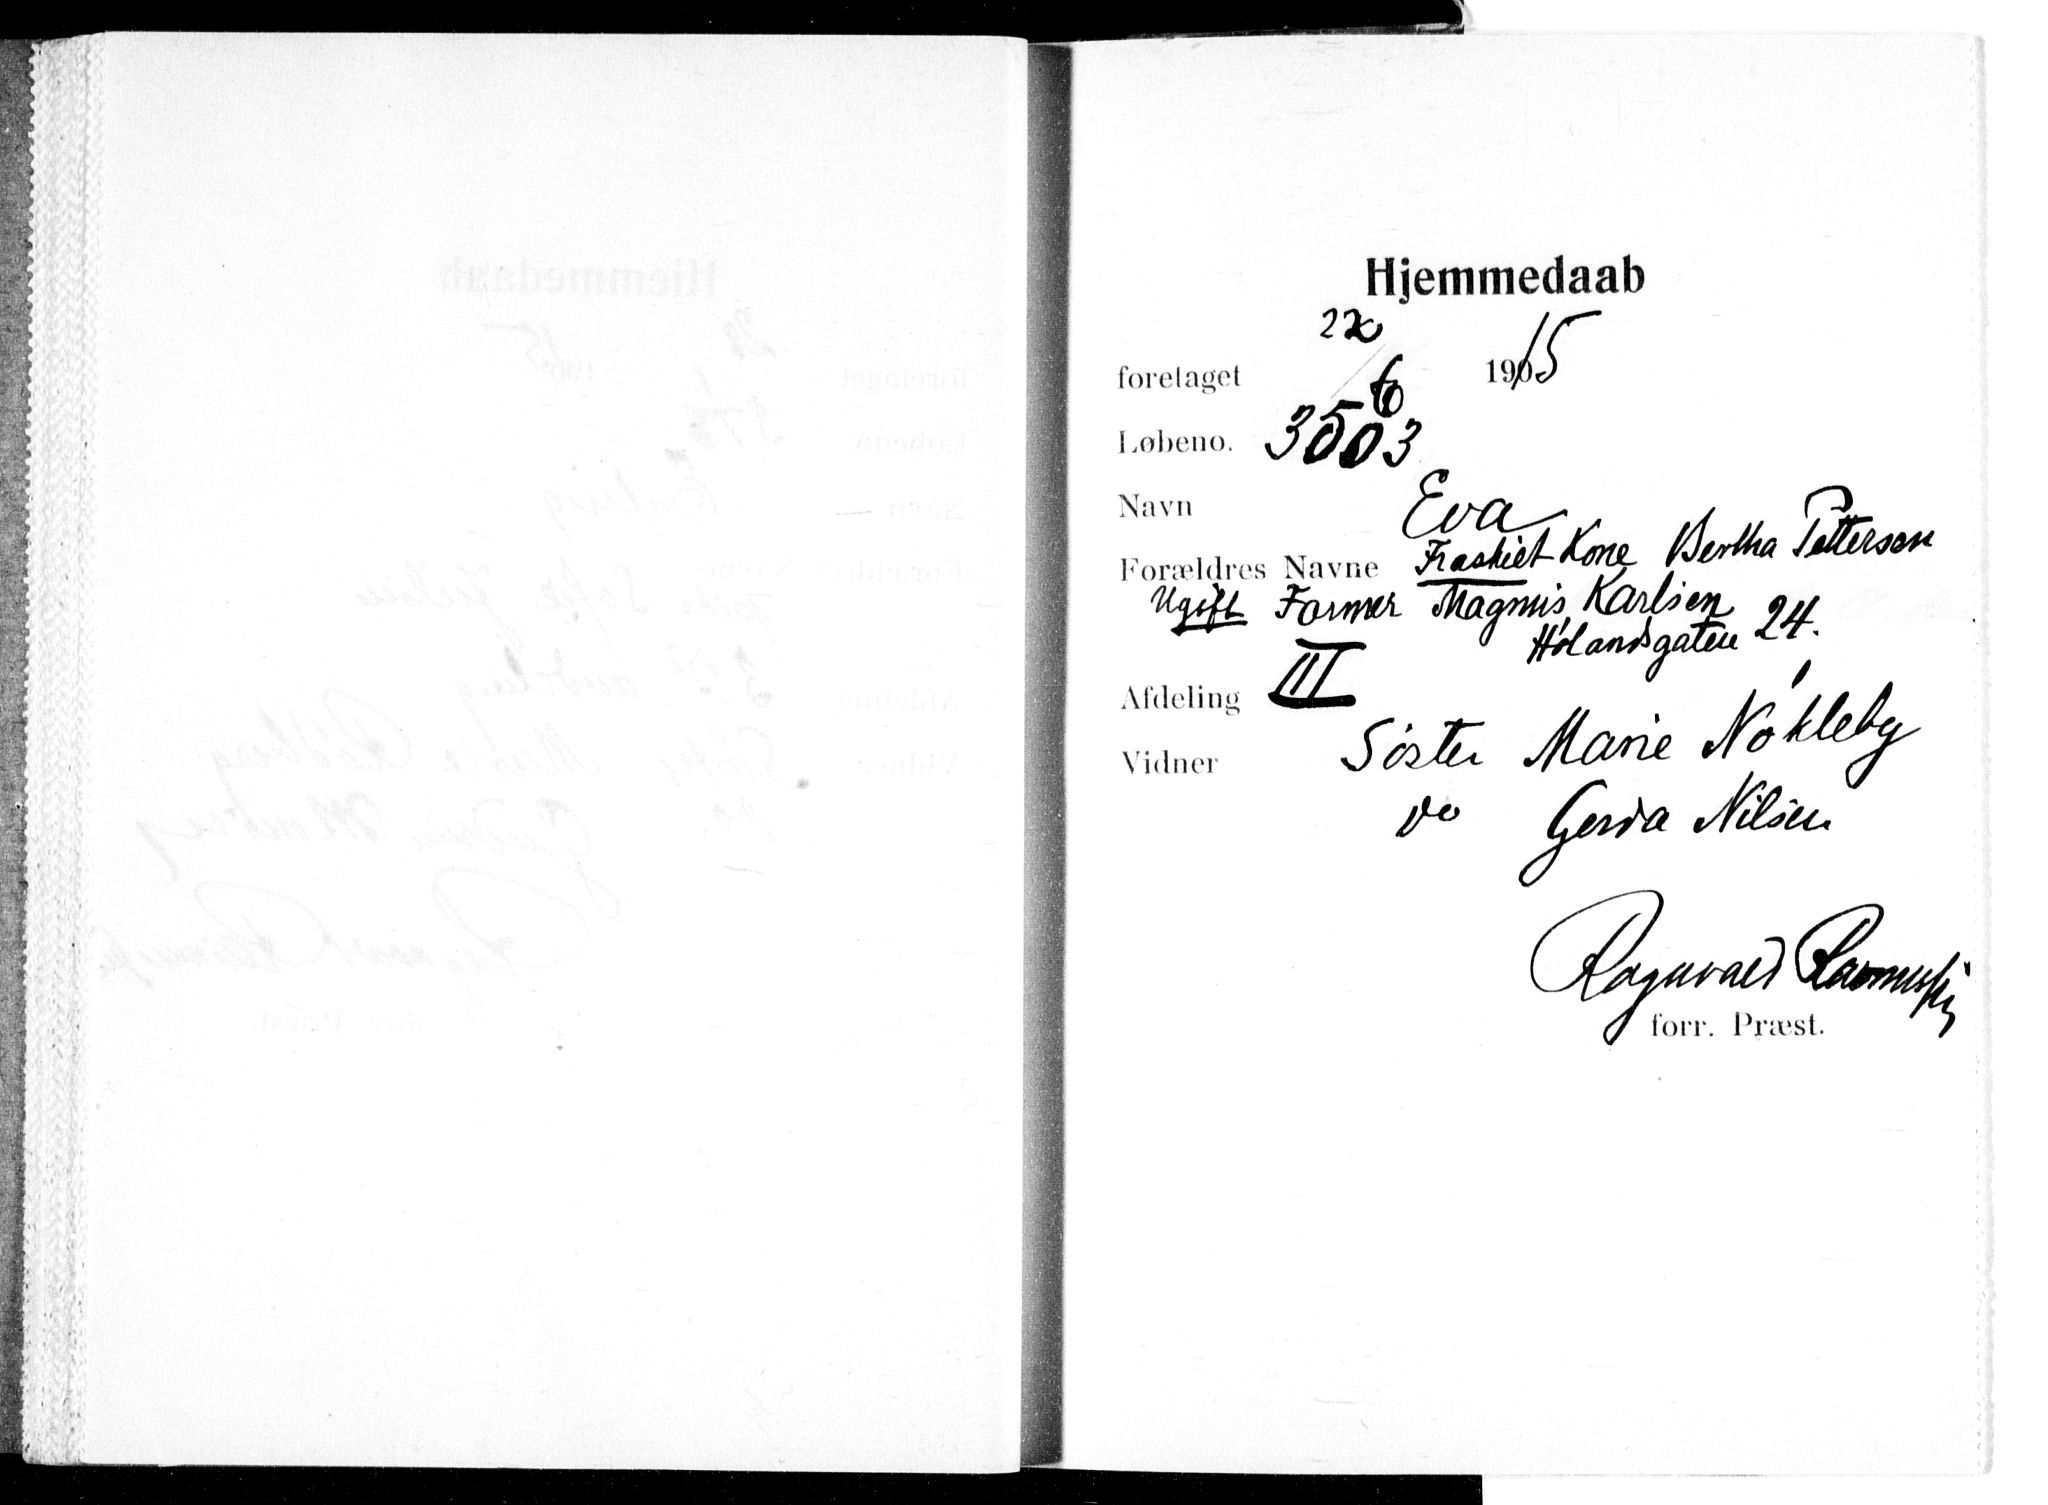 Hjemmedaab
foretaget 22/6 1915
Løbeno. 3503
Navn Eva
Forældres Navne Fraskilt Kone Bertha Pettersen
Ugift Farmer Magnus Karlsen
Hølandsgaten 24.
Afdeling III
Vidner Søster Marie Nøkleby
do Gerda Nilsen
Ragnvald
forr. Præst.